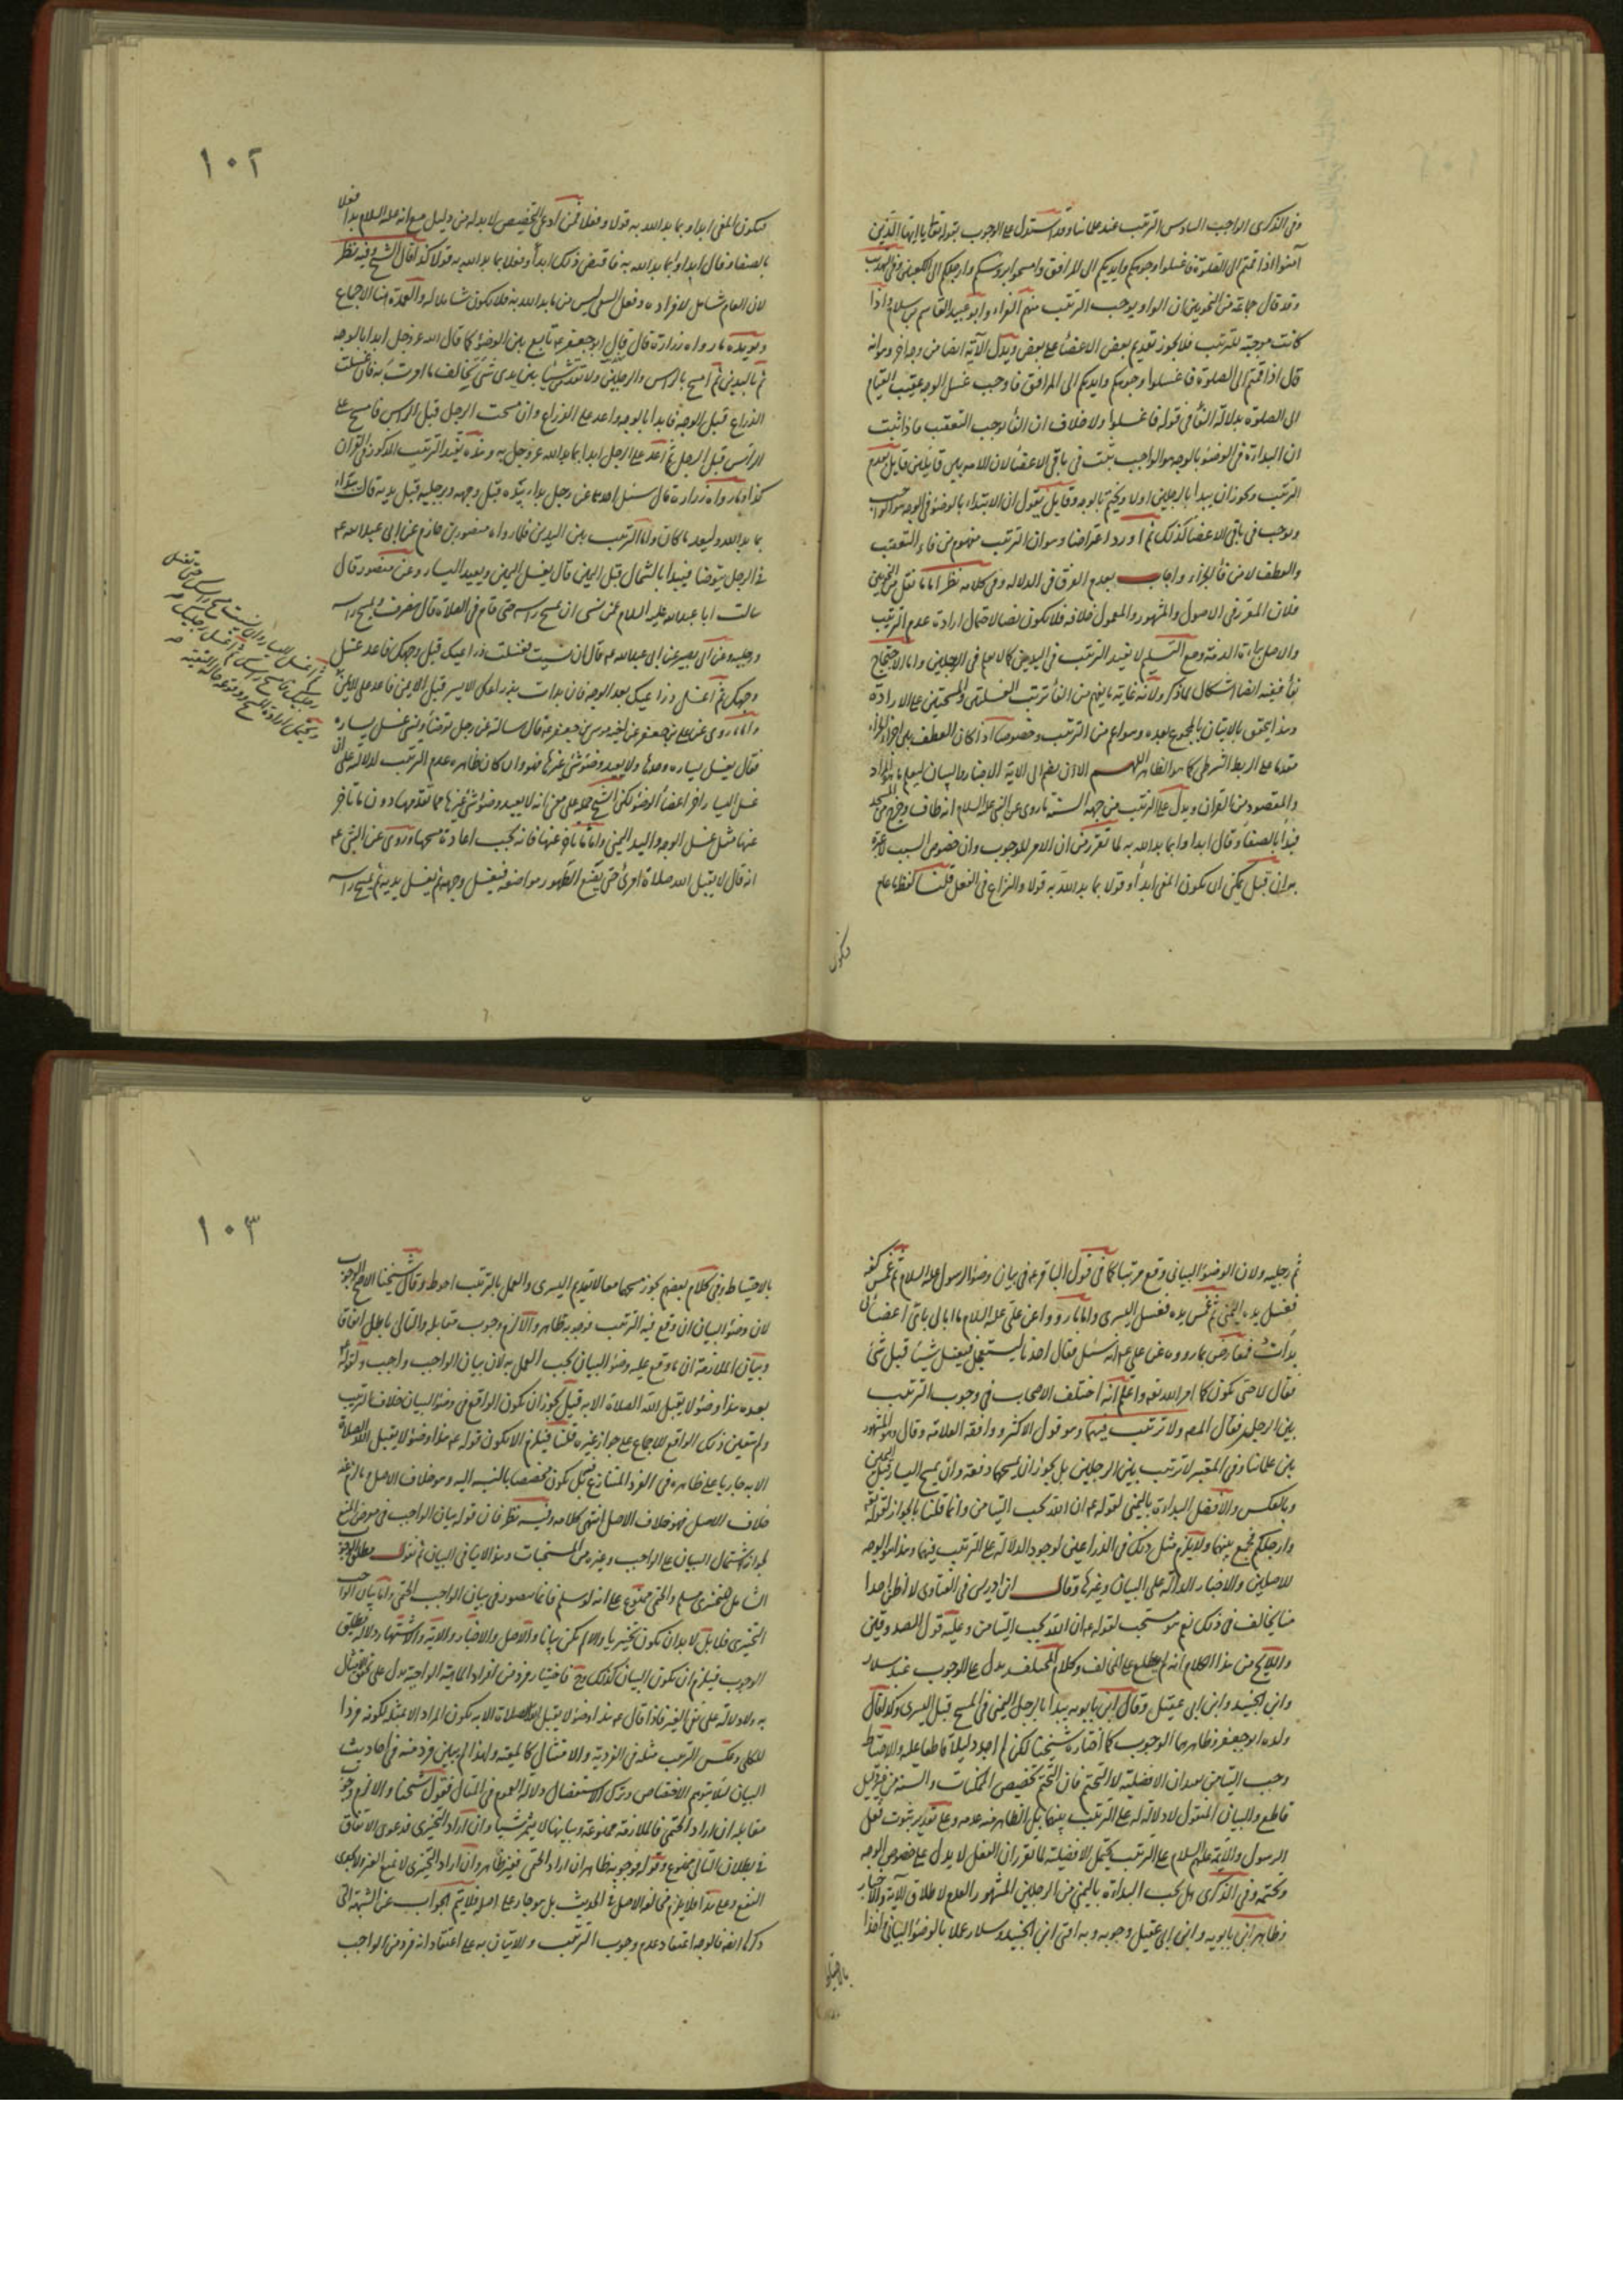 وفي الذكرى الواجب السادس الترتيب عند علمائنا وقد استدل على الوجوب بقوله تعالى يا ايها الذين
آمنوا اذا قمتم الى الصلوة فاغسلوا وجوهكم وايديكم الى المرافق وامسحوا برؤسكم وارجلكم الى الكعبين وفي التهذيب
وقد قال جماعة من النحويين ان الواو يوجب الترتيب منهم الفراء وابو عبيد القاسم بن سلام واذا
كانت موجبة للترتيب فلا يجوز تقديم بعض الاعضاء على بعض ويدل الآية ايضا من وجه اخر وهو انه
قال اذا قمتم الى الصلوة فاغسلوا وجوهكم وايديكم الى المرافق فاوجب غسل الوجه عقيب القيام
الى الصلوة بدلالة الفاء في قوله فاغسلوا ولا خلاف ان الفاء يوجب التعقيب فاذا ثبت
ان البداءة في الوضوء بالوجه هو الواجب ثبت في باقي الاعضاء لان الامة بين قايلين قايل بعدم
الترتيب ويجوز ان يبدأ بالرجلين اولا ويختم بالوجه وقايل يقول ان الابتداء بالوضوء في الوجه هو الواجب
ويوجب في باقي الاعضاء كذلك ثم اورد اعتراضا وهو ان الترتيب مفهوم من فاء التعقيب
والعطف لا من فاء الجزاء واجاب بعدم الفرق في الدلالة وفي كلامه نظر اما ما نقل من النحويين
فلان المقرر في الاصول والمشهور والمعمول خلافه فلا يكون نصا لاحتمال ارادة عدم الترتيب
والاصل براءة الذمة ومع التسليم لا يفيد الترتيب في اليدين كما لا يعلم في الرجلين واما الاحتجاج
بالفاء ففيه ايضا اشكال لما ذكر ولانه غاية ما يفهم من الفاء ترتيب الغسلتين والمسحتين على الارادة
وهذا يتحقق بالاتيان بالمجموع بعده وهو اعم من الترتيب وخصوصا اذا كان العطف على اجزاء الجزاء
مقدما على الربط الشرطي كما هو الظاهر اللهم الا ان يضم الى الآية الاخبار والبيان ليعلم ما هو المراد
والمقصود من القرآن ويدل على الترتيب من جهة السنة ما روي عن النبي عليه السلام انه طاف وخرج من المسجد
فبدأ بالصفا وقال ابداوا بما بدء الله به لما تقرر من ان الامر للوجوب وان خصوص السبب لا عبرة
به وان قيل يمكن ان يكون المعنى ابدأوا قولا بما بدء الله به قولا والنزاع في الفعل قلنا لفظ ما عام
فيكون
١٠٢
فيكون المعنى ابداوا بما بدء الله به قولا وفعلا فمن ادعى التخصيص لا بد له من دليل مع انه عليه السلام بدا فعلا
بالصفا وقال ابداوا بما بدء الله به فاقتضى ذلك ابدأوا فعلا بما بدء الله به قولا كذا قال الشيخ وفيه نظر
لان العام شامل لافراده وفعل السعي ليس من ما بدء الله به فلا يكون شاملا له والعمدة هنا الاجماع
ويؤيده ما رواه زرارة قال قال ابو جعفر ع تابع بين الوضوء كما قال الله عز وجل ابدا بالوجه
ثم باليدين ثم امسح بالرأس والرجلين ولا تقدمن شيئا بين يدي شيء تخالف ما امرت به فان غسلت
الذراع قبل الوجه فابدا بالوجه واعد على الذراع وان مسحت الرجل قبل الرأس فامسح على
الرأس قبل الرجل ثم اعد على الرجل ابدا بما بدء الله عز وجل به وهذه يفيد الترتيب المذكور في القرآن
كذا وما رواه زرارة قال سئل احدهما عن رجل بداء بيده قبل وجهه وبرجليه قبل يديه قال يبداء
بما بدء الله وليعد ما كان واما الترتيب بين اليدين فلما رواه منصور بن حازم عن ابي عبد الله ع
في الرجل يتوضا فيبدأ بالشمال قبل اليمين قال يغسل اليمين ويعيد اليسار وعن منصور قال
سالت ابا عبد الله عليه السلام عمن نسي ان يمسح راسه حتى قام في الصلاة قال ينصرف ويمسح راسه
ورجليه وعن ابي بصير عن ابي عبد الله ع قال ان نسيت فغسلت ذراعيك قبل وجهك فاعد غسل
وجهك ثم اغسل ذراعيك بعد الوجه فان بدات بذراعك الايسر قبل الايمن فاعد على الايمن
واما ما روى عن علي بن جعفر عن اخيه موسى بن جعفر ع قال سالته عن رجل توضأ ونسي غسل يساره
فقال يغسل يساره وحدها ولا يعيد وضوء شيء غيرها فهو وان كان ظاهره عدم الترتيب لدلالته على ان
غسل اليسار اخر اعضاء الوضوء لكن الشيخ حمله على معنى انه لا يعيد وضوء شيء غيرها مما تقدمها دون ما تأخر
عنها مثل غسل الوجه واليد اليمنى واما ما تأخر عنها فانه يجب اعادة مسحها وروى عن النبي ع
انه قال لا يقبل الله صلاة امرئ حتى يضع الطهور مواضعه فيغسل وجهه ثم يغسل يديه ثم يمسح راسه
ثم اغسل اليسار وان نسيت مسح راسك حتى تغسل
رجليك فامسح راسك ثم اغسل رجليك
ثم رجليه ولان الوضوء البياني وقع مرتبا كما في قول الباقر ع في بيان وضوء الرسول عليه السلام ثم غمس كفه
فغسل يده اليمنى ثم غمس يده فغسل اليسرى واما ما رووا عن علي عليه السلام ما ابالي باي اعضائي
بدأت فمعارض بما رووه عن علي ع انه سئل فقال احدنا يستعجل فيغسل شيئا قبل شئ
فقال لا حتى يكون كما امر الله تعالى واعلم انه اختلف الاصحاب في وجوب الترتيب
بين الرجلين فقال المص ولا ترتيب فيهما وهو قول الاكثر ووافقه العلامة وقال وهو المشهور
بين علمائنا وفي المعتبر لا ترتيب بين الرجلين بل يجوز ان يمسحهما دفعة وان يمسح اليسار قبل اليمين
وبالعكس والافضل البداءة باليمنى لقوله ع ان الله يحب التيامن وانما قلنا بالجواز لقوله تعالى
وارجلكم فجمع بينهما ولا يلزم مثل ذلك في الذراعين لوجود الدلالة على الترتيب فيهما وهذا هو الوجه
للاصلين والاخبار الدالة على البيان وغيرها وقال ابن ادريس في الفتاوى لا اظن احدا
منا يخالف في ذلك نعم هو مستحب لقوله ع ان الله يحب التيامن وعليه قول الصدوقين
واللايح من هذا الكلام انه لم يطلع على المخالف وكلام المختلف يدل على الوجوب عند سلار
وابن الجنيد وابن ابي عقيل وقال ابن بابويه يبدأ بالرجل اليمنى في المسح قبل اليسرى وكذا قال
ولده ابو جعفر وظاهرهما الوجوب كما اختاره شيخنا لكن لم اجد دليلا قاطعا عليه والاحتياط
وحب التيامن يفيدان الافضلية لا التحتم فان التحتم تخصيص الكتاب والسنة من غير دليل
قاطع والبيان المنقول لا دلالة له على الترتيب بينهما بل الظاهر منه عدمه وعلى تقدير ثبوت فعل
الرسول والائمة عليهم السلام على الترتيب يحتمل الافضلية لما تقرر ان الفعل لا يدل على خصوص الوجه
وتحتمه وفي الذكرى هل يجب البداءة باليمنى من الرجلين المشهور العدم لاطلاق الآية والاخبار
وظاهر ابن بابويه وابن ابي عقيل وجوبه وبه افتى ابن الجنيد وسلار عملا بالوضوء البياني واخذا
بالاحتياط
١٠٣
بالاحتياط وفي كلام بعضهم يجوز مسحهما معا لا تقديم اليسرى والعمل بالترتيب احوط وقال شيخنا الاصح الوجوب
لان وضوء البيان ان وقع فيه الترتيب فوجوبه ظاهر والا لزم وجوب مقابله والتالي باطل اتفاقا
وبيان الملازمة ان ما وقع عليه وضوء البيان يجب العمل به لان بيان الواجب واجب ولقوله ع
بعده هذا وضوء لا يقبل الله الصلاة الا به قيل يجوز ان يكون الواقع في وضوء البيان خلاف الترتيب
ولم يتعين ذلك الواقع للاجماع على جواز غيره قلنا فيلزم الا يكون قوله ع هذا وضوء لا يقبل الله الصلاة
الا به جاريا على ظاهره في الفرد المتنازع بل يكون مخصصا بالنسبة اليه وهو خلاف الاصل وما لزم منه
خلاف الاصل فهو خلاف الاصل انتهى كلامه وفيه نظر فان قوله بيان الواجب في معرض المنع
لجواز اشتمال البيان على الواجب وغيره من المستحبات وهو الاتيان في البيان ثم نقول مطلق الوجوب
الشامل للتخييري مسلم والحتمي ممنوع على انه لو سلم فانما هو في بيان الواجب الحتمي واما بيان الواجب
التخييري فلا بل لا بد ان يكون تخييريا والا لم يكن بيانا والاصل والاخبار والآية والاشتهار دلائل مطلق
الوجوب فيلزم ان يكون البيان كذلك وح فاختيار فرد من افراد الماهية الواجبة يدل على تحقق الامتثال
به ولا دلالة على نفي الغير فاذا قال ع هذا وضوء لا يقبل الله الصلاة الا به يكون المراد الا بمثله لكونه فردا
للكلي وعكس الترتيب مثله في الفردية والامتثال كالمعية ولهذا لم يبين فرد منه في احاديث
البيان لئلا يتوهم الاختصاص وترك الاستفصال دلالة العموم في المقال فقول شيخنا والا لزم وجوب
مقابله ان اراد الحتمي فالملازمة ممنوعة وبيانها لا يثمر شيئا وان اراد التخييري فدعوى الاتفاق
في بطلان التالي ممنوع وقوله فوجوبه ظاهر ان اراد الحتمي فغير ظاهر وان اراد التخييري لا تمنع الغير ولا يجدي
النفع وعلى هذا فلا يلزم مخالفة الاصل في الحديث بل هو جار على اصله فلا يتم الجواب عن الشبهة التي
ذكرها ايضا فالوجه اعتقاد عدم وجوب الترتيب والاتيان به على اعتقاد انه فرد من الواجب